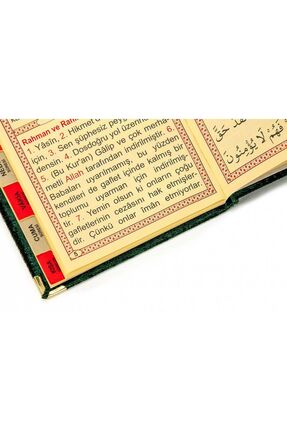 Rahman ve Rahî
1. Yâsîn. 2. Hikmet d
için. 3. Sen şüphesiz pey
densin. 4. Dosdoğru yol üzerin
5. (Bu Kur'an) Gâlip ve çok merha-
metli Allah tarafından indirilmiştir. 6.
Babaları uyarılmamış, bu yüzden
kendileri de gaflet içinde kalmış bir
toplumu uyarman için indirilmiş-
tir. 7. Yemin olsun ki onların çoğu
gafletlerinin cezasını hak etmişler-
dir. Çünkü onlar îmân etmiyorlar.
5
حَقَّ
فَهُمْ لَا يُؤْمِنُونَ
YÂSÎN
CUMA
KISA